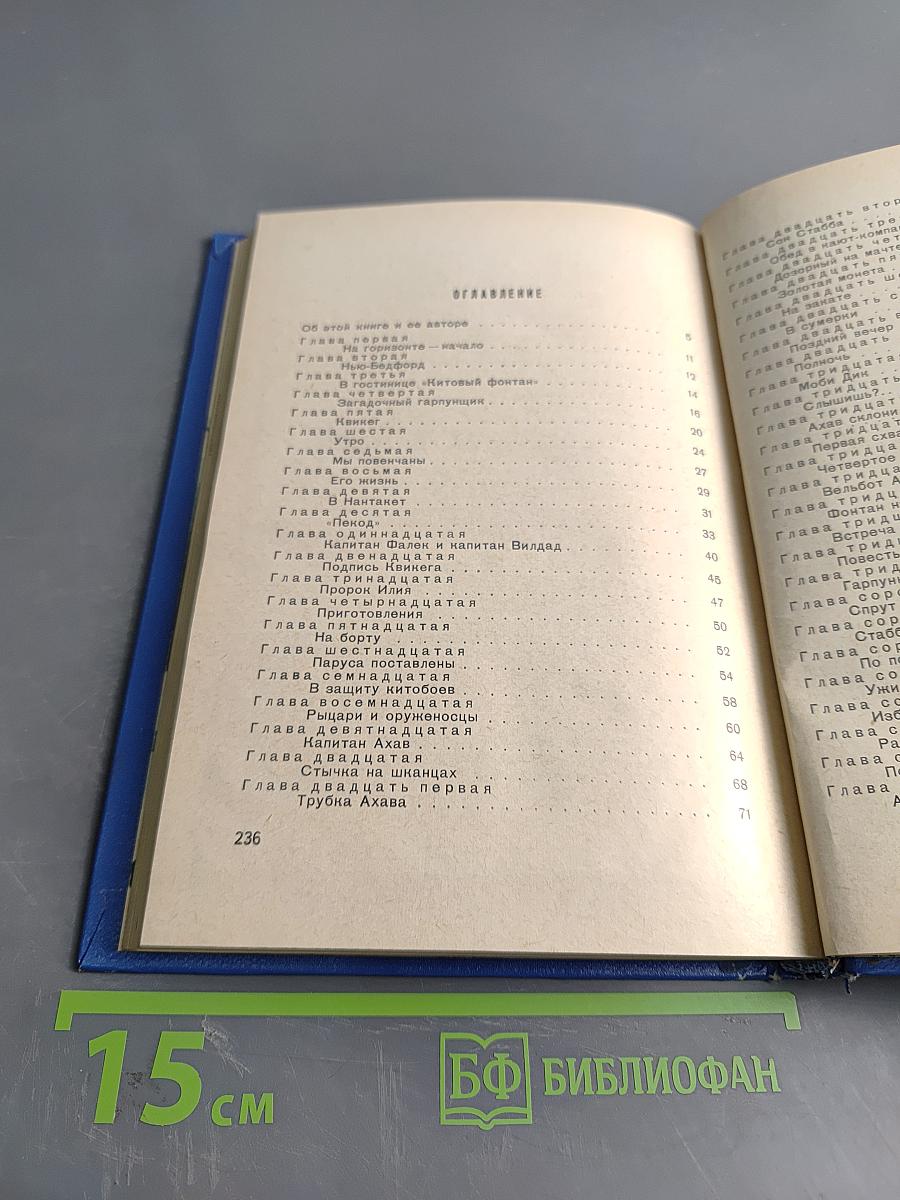 ОГЛАВЛЕНИЕ
Об этой книге и ее авторе . . . 5
Глава первая
На горизонте — начало . . . 11
Глава вторая
Нью-Бедфорд . . . 12
Глава третья
В гостинице «Китовый фонтан» . . . 14
Глава четвертая
Загадочный гарпунщик . . . 16
Глава пятая
Квикег . . . 20
Глава шестая
Утро . . . 24
Глава седьмая
Мы повенчаны . . . 27
Глава восьмая
Его жизнь . . . 29
Глава девятая
В Нантакет . . . 31
Глава десятая
«Пекод» . . . 33
Глава одиннадцатая
Капитан Фалек и капитан Вилдад . . . 40
Глава двенадцатая
Подпись Квикега . . . 45
Глава тринадцатая
Пророк Илия . . . 47
Глава четырнадцатая
Приготовления . . . 50
Глава пятнадцатая
На борту . . . 52
Глава шестнадцатая
Паруса поставлены . . . 54
Глава семнадцатая
В защиту китобоев . . . 58
Глава восемнадцатая
Рыцари и оруженосцы . . . 60
Глава девятнадцатая
Капитан Ахав . . . 64
Глава двадцатая
Стычка на шканцах . . . 68
Глава двадцать первая
Трубка Ахава . . . 71
236
Глава двадцать втор
Сон Стабба . . .
Глава двадцать тре
Обед в кают-компа
Глава двадцать чет
Дозорный на мачте
Глава двадцать пя
Золотая монета .
Глава двадцать ше
На закате . . .
Глава двадцать с
В сумерки . . .
Глава двадцать в
Поздний вечер
Глава двадцать
Полночь . .
Глава тридцата
Моби Дик . .
Глава тридцать
Слышишь?. .
Глава тридцат
Ахав склони
Глава тридцат
Первая схва
Глава тридца
Четвертое
Глава тридца
Вельбот А
Глава тридц
Фонтан н
Глава тридц
Встреча
Глава триди
Повесть
Глава трид
Гарпун
Глава соро
Спрут
Глава сор
Стабб
Глава сор
По по
Глава со
Ужи
Глава со
Изб
Глава с
Ра
Глава с
По
Глава
А
15 см
БФ БИБЛИОФАН